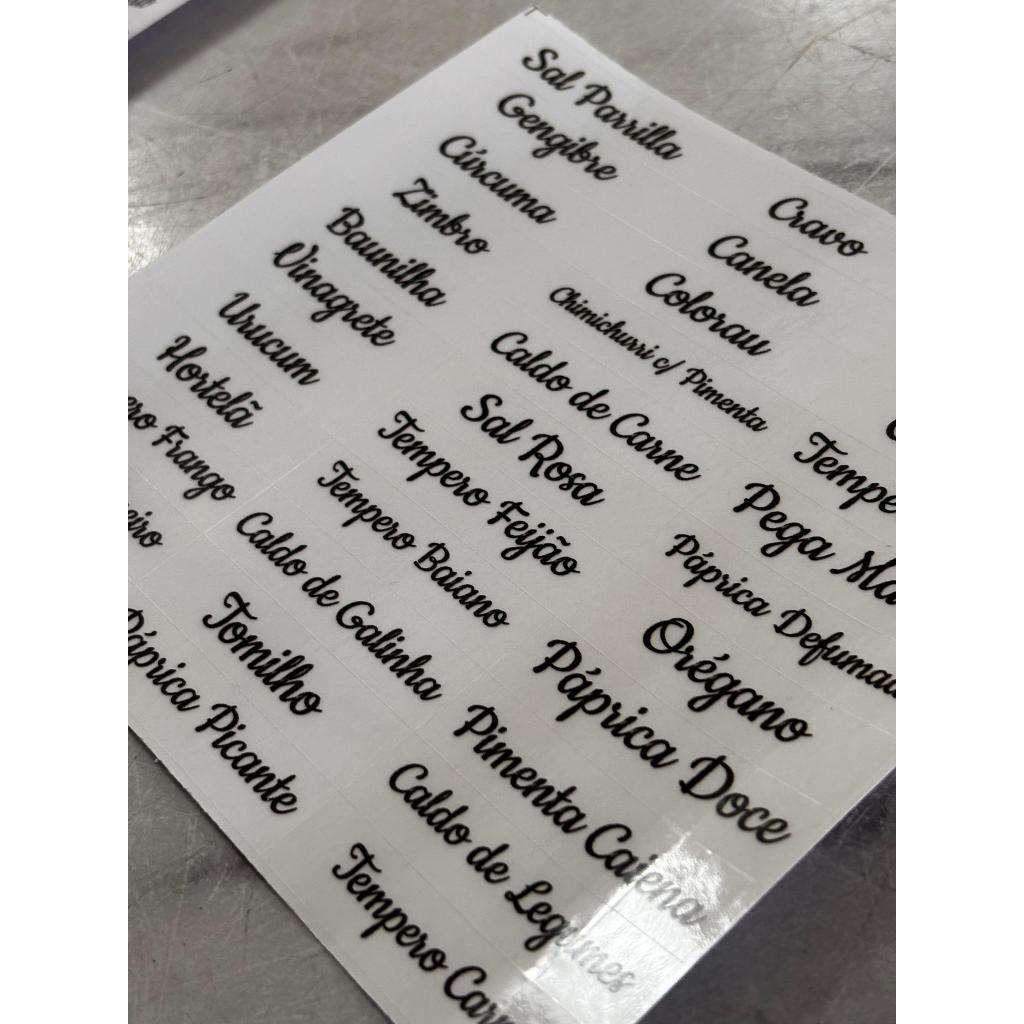 Sal Parrilla
Gengibre
Cúrcuma
Zimbro
Baunilha
Vinagrete
Urucum
Hortelã
Frango
Cravo
Canela
Colorau
Chimichurri c/ Pimenta
Caldo de Carne
Sal Rosa
Tempero Feijão
Tempero Baiano
Caldo de Galinha
Tomilho
Páprica Picante
Pega
Páprica
Orégano
Páprica Doce
Pimenta Caiena
Caldo de Legumes
Tempero